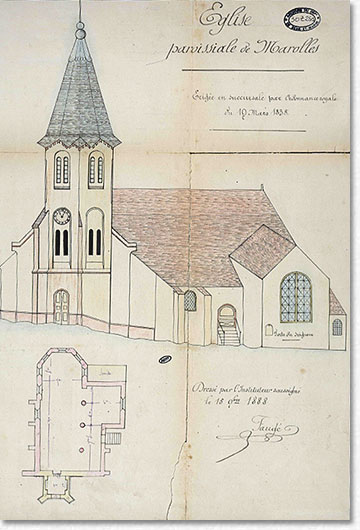 Eglise
paroissiale de Marolles
Erigée en succursale par Ordonnance royale
du 19 Mars 1838.
Dressé par l'Instituteur soussigné
le 18 9bre 1888